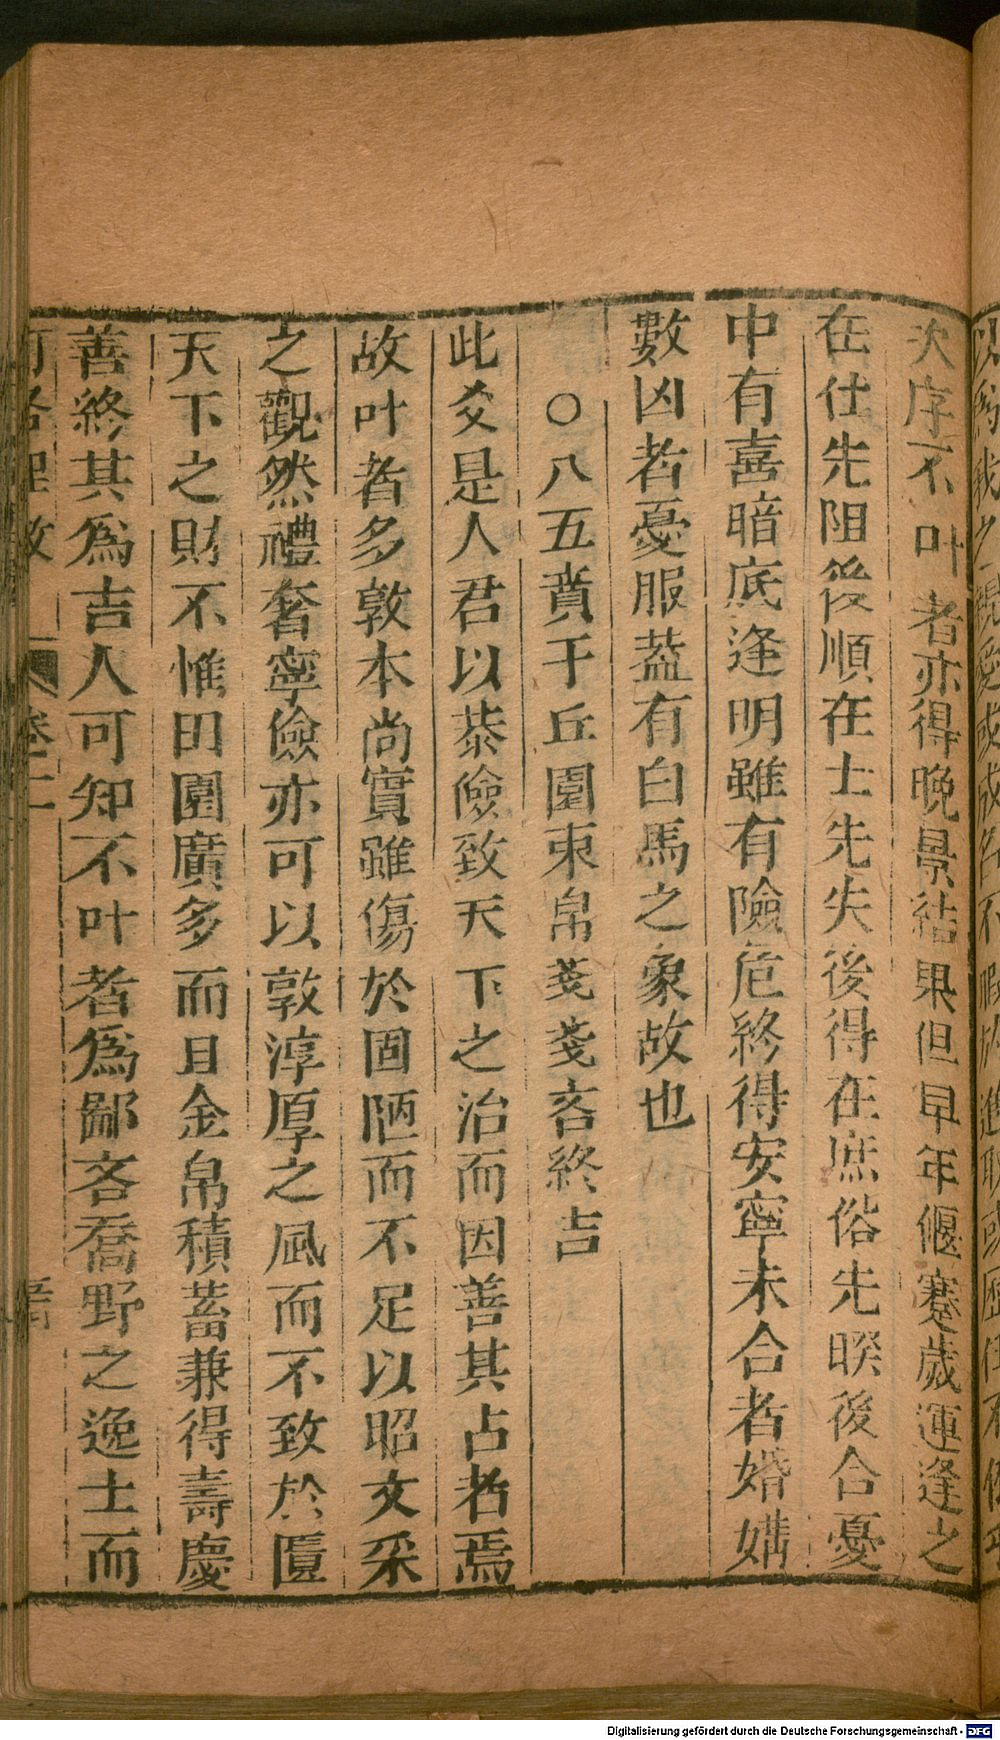 次序不叶者亦得晚景結果但早年偃蹇歲運逢之
在仕先阻後順在士先失後得在庶俗先暌後合憂
中有喜暗底逢明雖有險危終得安寧未合者婚媾
數凶者憂服葢有白馬之象故也
○八五賁于丘園束帛戔戔吝終吉
此爻是人君以恭儉致天下之治而因善其占者焉
故叶者多敦本尚實雖傷於固陋而不足以昭文采
之觀然禮奢寧儉亦可以敦淳厚之風而不致於匱
天下之財不惟田園廣多而且金帛積蓄兼得壽慶
善終其爲吉人可知不叶者爲鄙吝喬野之逸士而
卷二
Digitalisierung gefördert durch die Deutsche Forschungsgemeinschaft - DFG